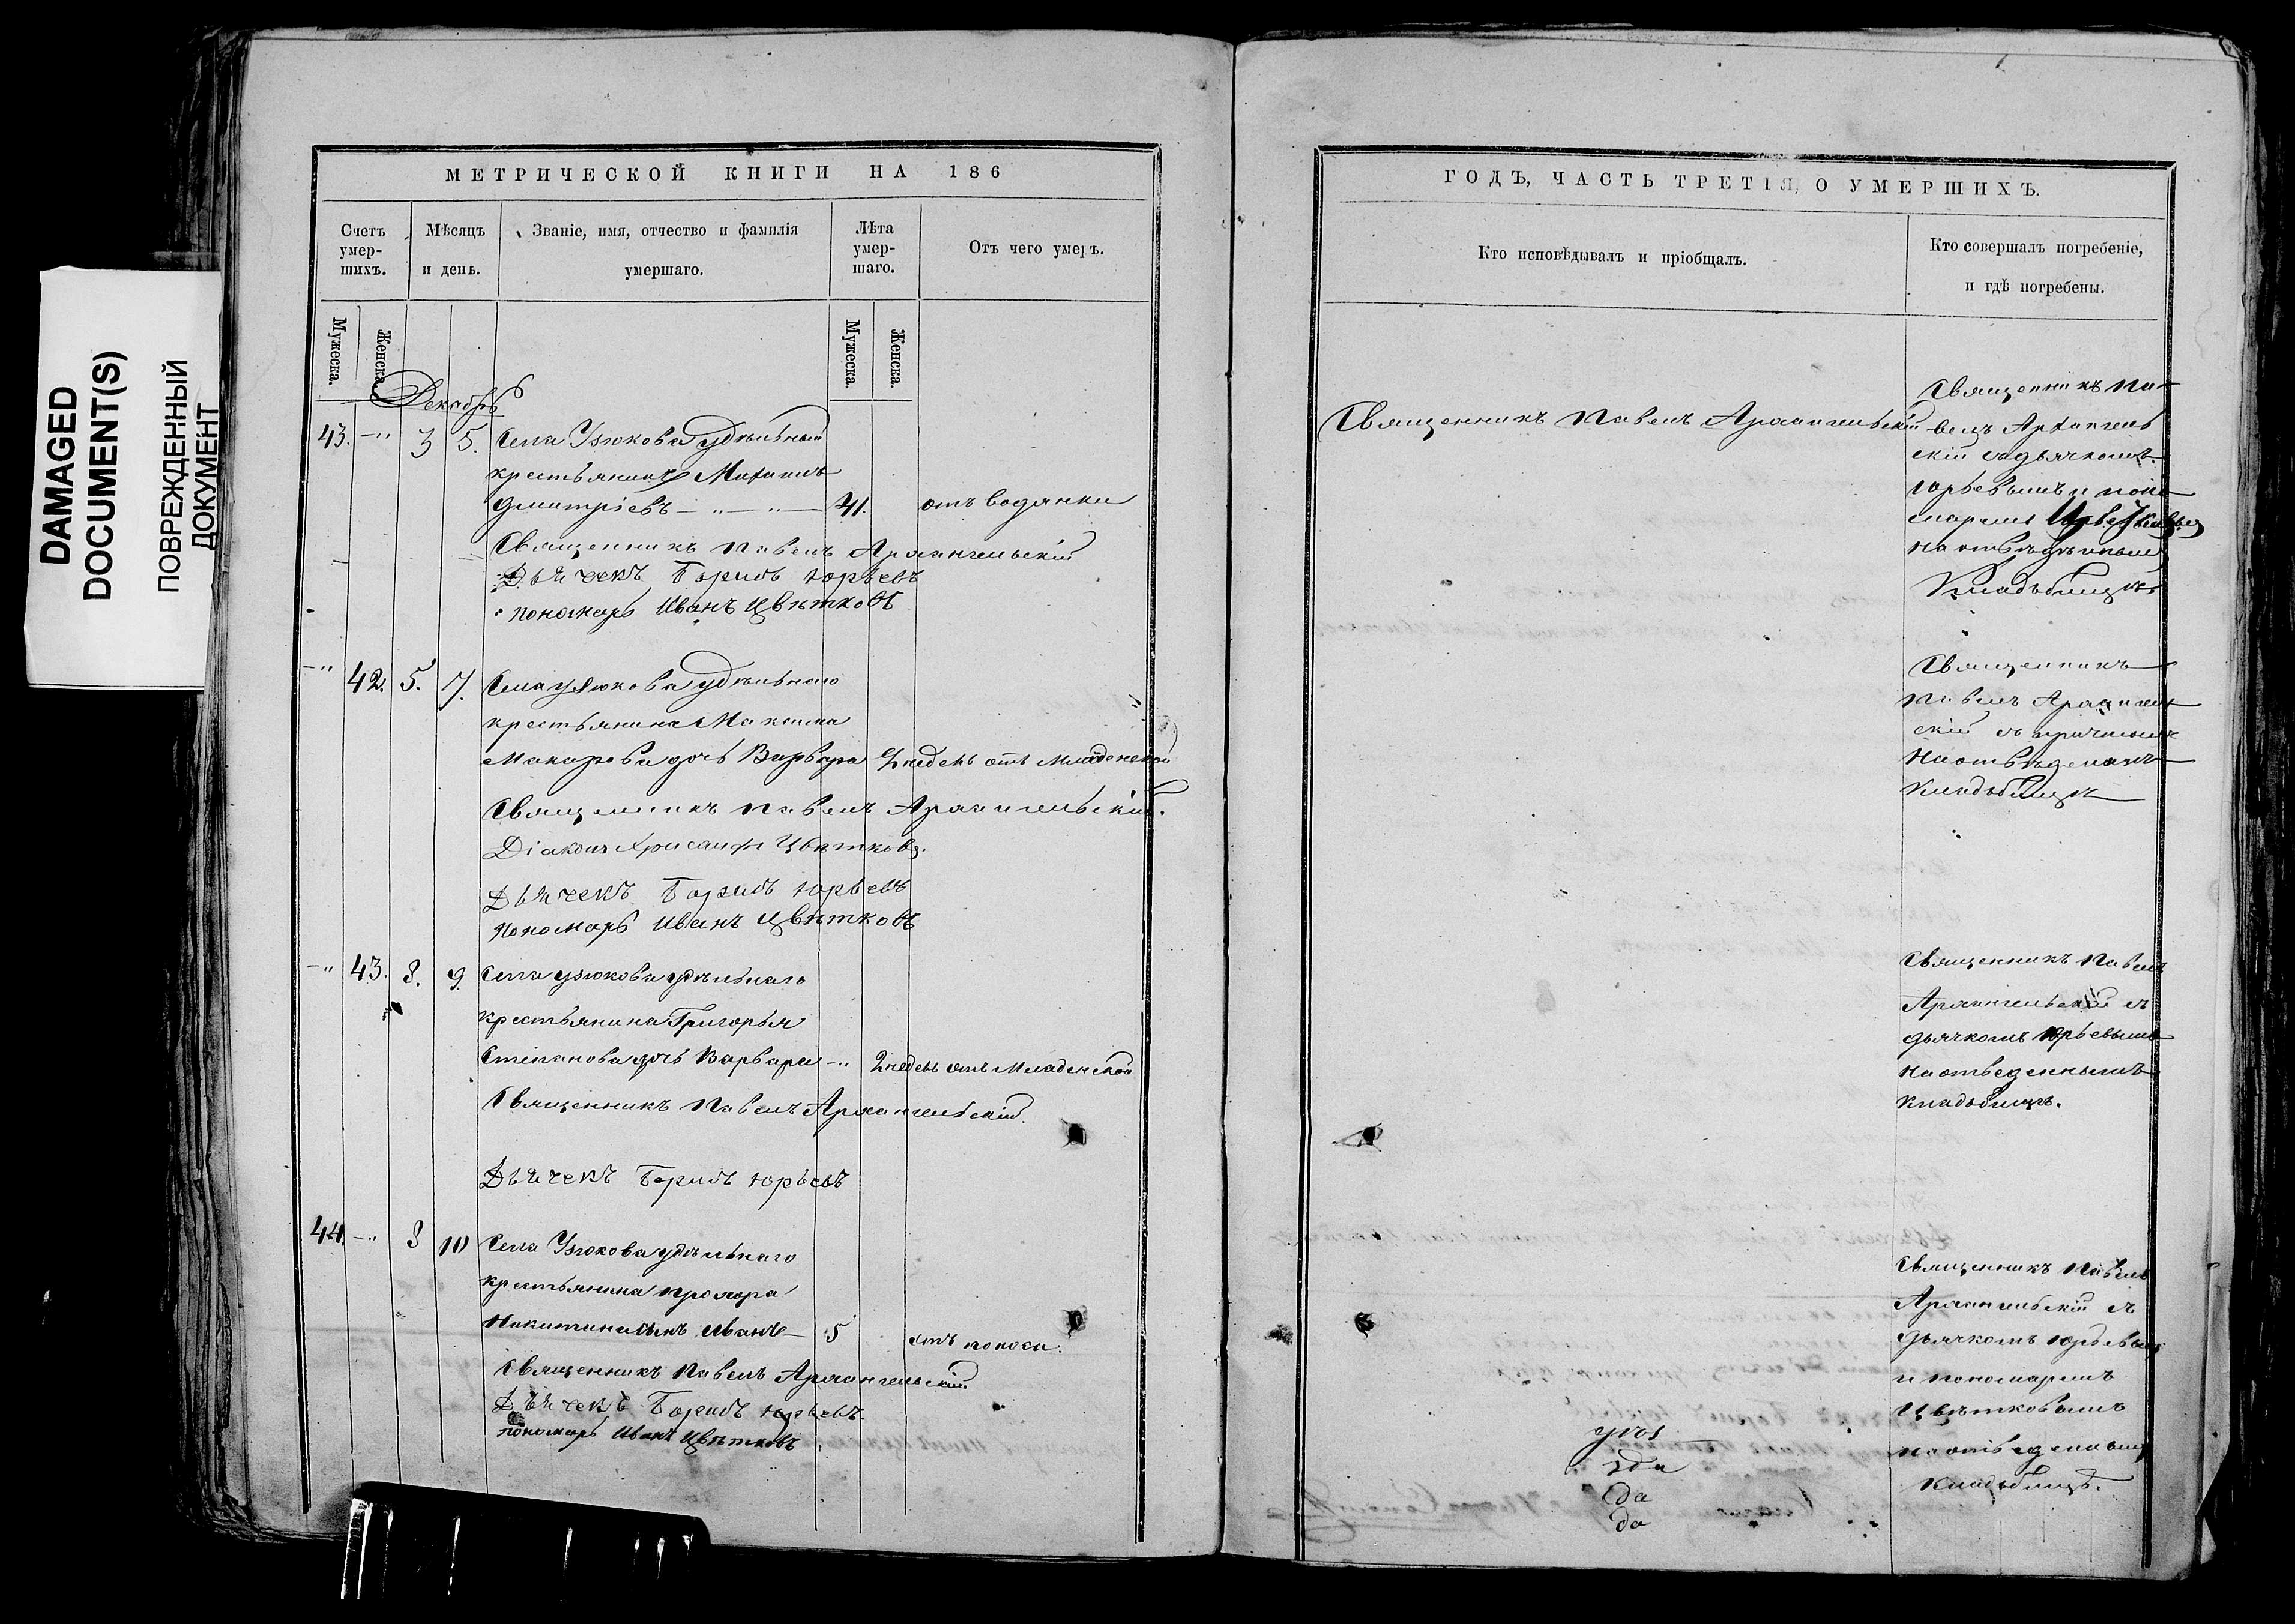 DAMAGED
DOCUMENT(S)
ПОВРЕЖДЕННЫЙ
ДОКУМЕНТ
МЕТРИЧЕСКОЙ КНИГИ НА 186
Счетъ умер-шихъ.
Мѣсяцъ и день.
Званіе, имя, отчество и фамилія умершаго.
Лѣта умер-шаго.
Отъ чего умеръ.
Мужеска.
Женска.
Мужеска.
Женска.
Декабрь
43. —" 3 5. Села Узюкова удѣльный
крестьянинъ Михаилъ
Дмитріевъ — " — " — 41. отъ водянки
Священникъ Павелъ Архангельскій
Дьячекъ Борисъ Юрьевъ
пономарь Иванъ Цвѣтковъ
—" 42. 5. 7. Села Узюкова удѣльнаго
крестьянина Максима
Макарова дочь Варвара недель отъ младенской
Священникъ Павелъ Архангельскій.
Діаконъ Хрисанфъ Цвѣтковъ.
Дьячекъ Борисъ Юрьевъ
Пономарь Иванъ Цвѣтковъ
—" 43. 8. 9. Села Узюкова удѣльнаго
крестьянина Григорья
Степанова дочь Варвара —" 2 недель отъ младенской
Священникъ Павелъ Архангельскій.
Дьячекъ Борисъ Юрьевъ
44. —" 8 10 Села Узюкова удѣльнаго
крестьянина Прохора
Никитина сынъ Иванъ — 5 отъ поноса.
Священникъ Павелъ Архангельскій
Дьячекъ Борисъ Юрьевъ
пономарь Иванъ Цвѣтковъ
ГОДЪ, ЧАСТЬ ТРЕТІЯ, О УМЕРШИХЪ.
Кто исповѣдывалъ и пріобщалъ.
Кто совершалъ погребеніе,
и гдѣ погребены.
Священникъ Павелъ Архангельскій
Священникъ Па-
велъ Архангель
скій съ дьячкомъ
Юрьевымъ и поно
маремъ
на отведенномъ
Кладбищѣ
Священникъ
Павелъ Архангель
скій съ причтомъ
на отведенномъ
Кладбищѣ
Священникъ Павелъ
Архангельскій съ
дьячкомъ Юрьевымъ
на отведенномъ
кладбищѣ.
Священникъ Павелъ
Архангельскій съ
дьячкомъ Юрьевымъ
и пономаремъ
Цвѣтковымъ
на отведенномъ
кладбищѣ.
да
да